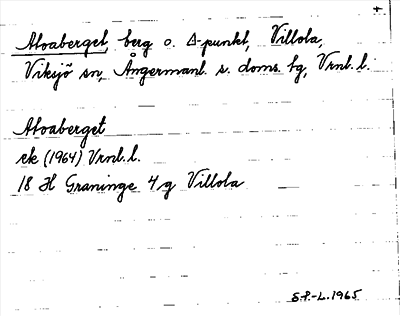 +
Aloaberget, berg o. Δ-punkt, Villola,
Viksjö sn, Ångermanl. s. doms. hg, Vrnl. l.
Aloaberget
ek (1964) Vrnl. l.
18 H Graninge 4 g Villola
S.P.-L. 1965